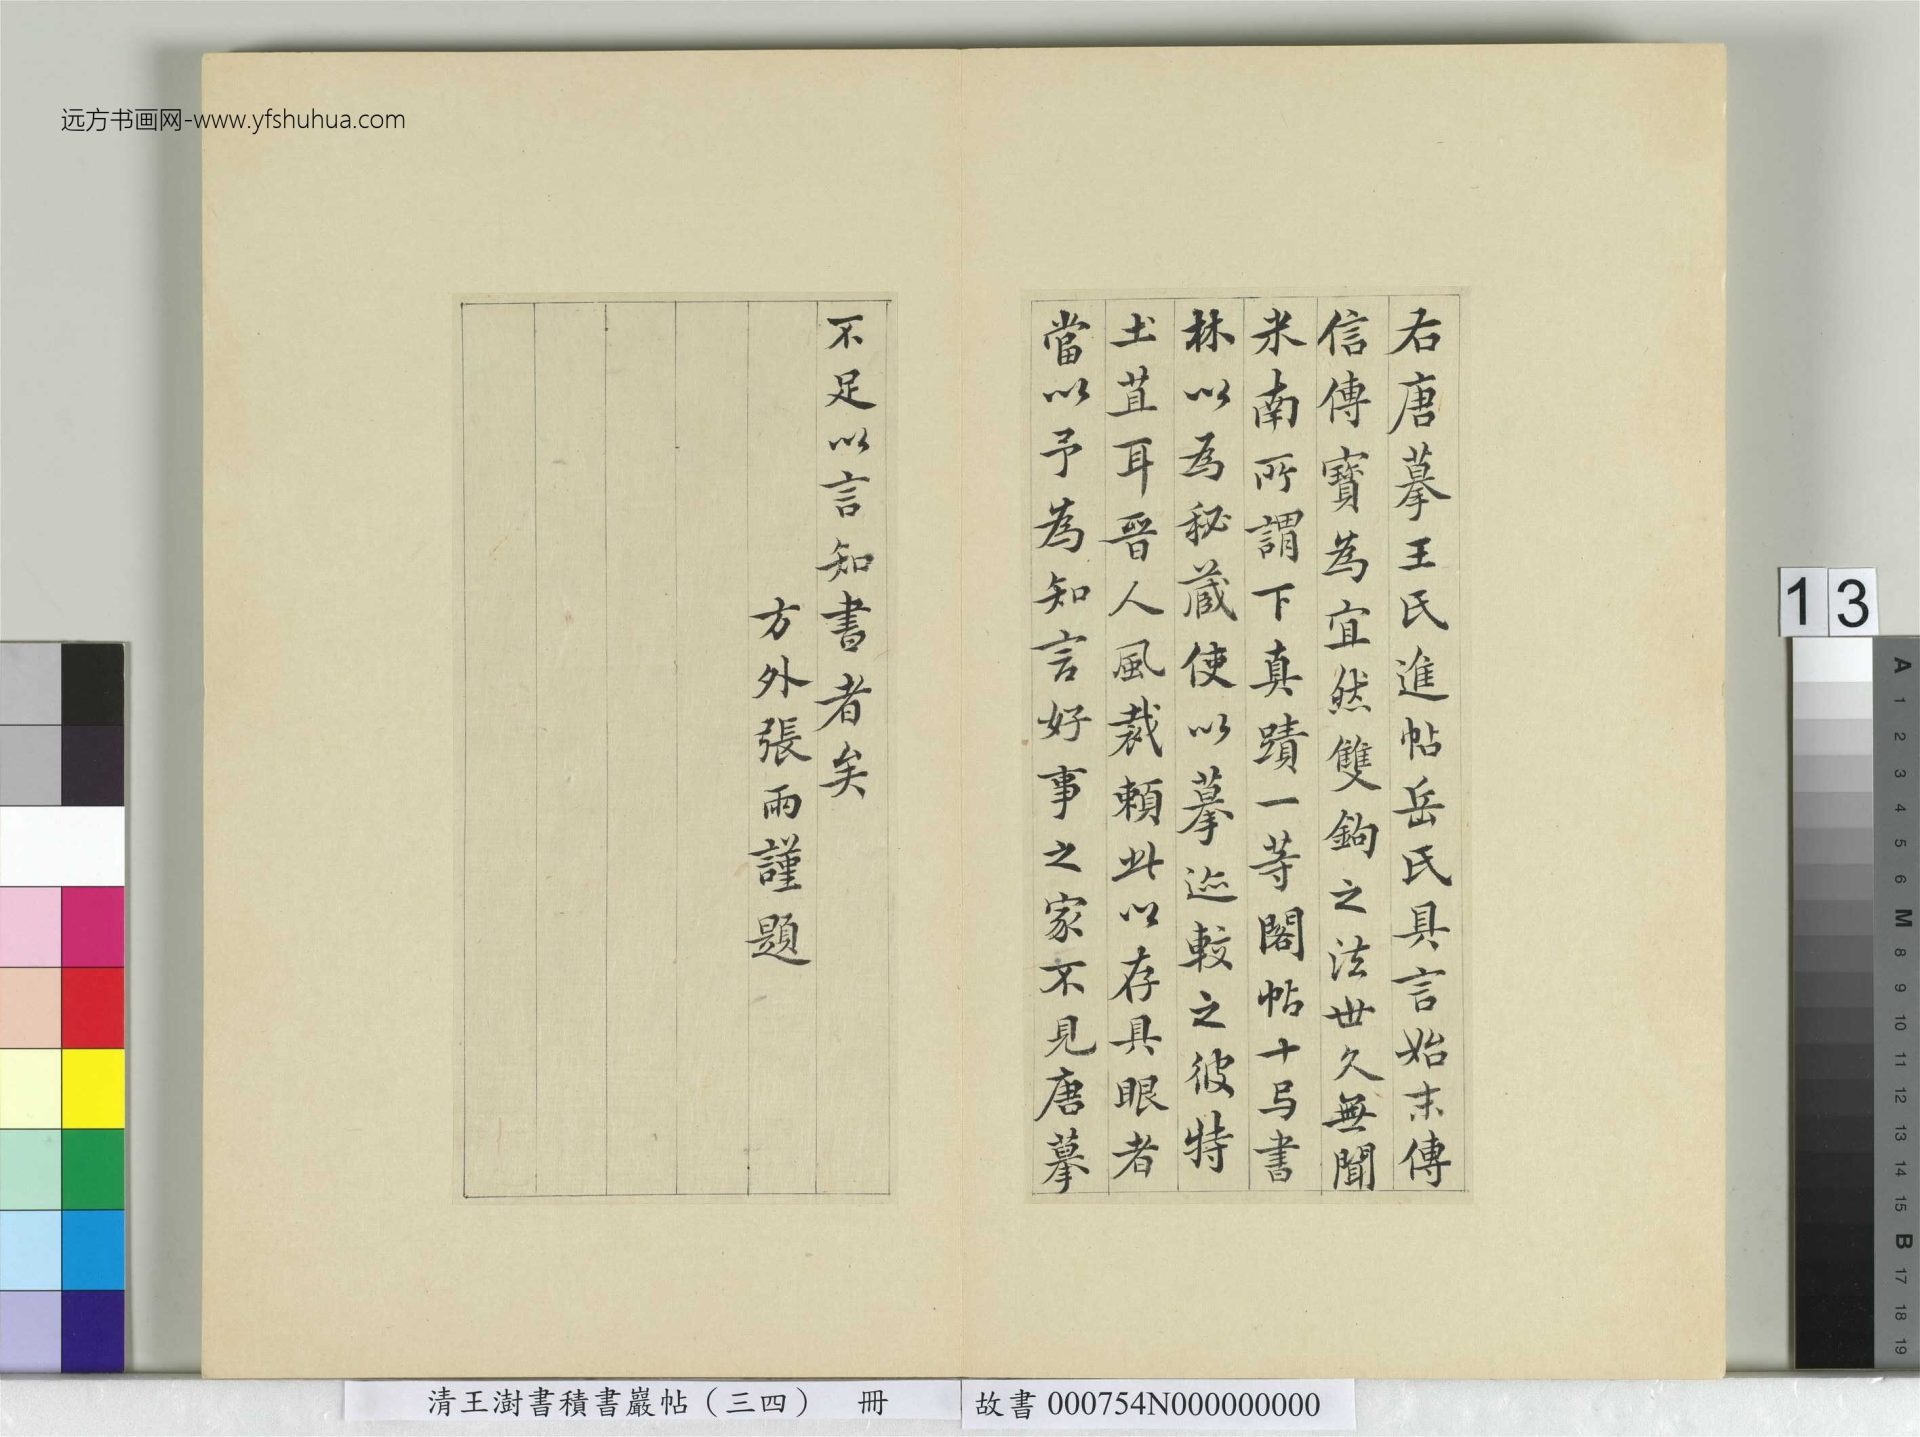 远方书画网-www.yfshuhua.com
右唐摹王氏進帖岳氏具言始末傳
信傳寶為宜然雙鉤之法世久無聞
米南所謂下真蹟一等閣帖十与書
林以為秘藏使以摹迹較之彼特
土苴耳晉人風裁賴此以存具眼者
當以予為知言好事之家不見唐摹
不足以言知書者矣
方外張雨謹題
13
A 1 2 3 4 5 6 M 8 9 10 11 12 13 14 15 B 17 18 19
清王澍書積書巖帖（三四） 冊
故書 000754N000000000